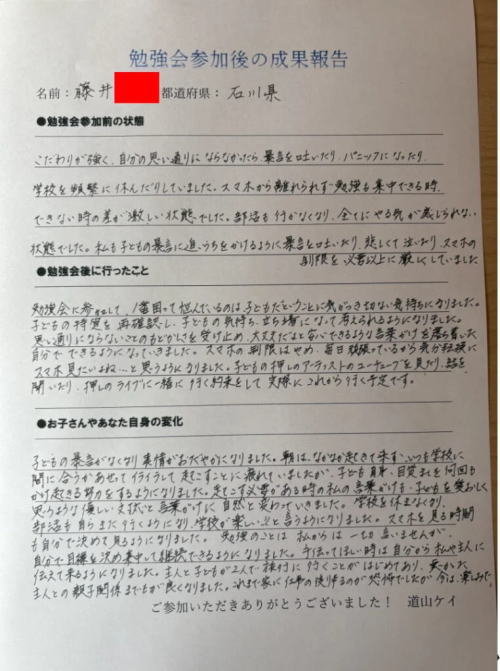 勉強会参加後の成果報告
名前：藤井 都道府県：石川県
●勉強会参加前の状態
こだわりが強く、自分の思い通りにならなかったら暴言を吐いたり、パニックになったり、
学校を頻繁に休んだりしていました。スマホから離れられず勉強も集中できる時、
できない時の差が激しい状態でした。部活も行かなくなり、全てにやる気が感じられない
状態でした。私も子どもの暴言に追いうちをかけるように暴言を吐いたり、悲しくて泣いたり、スマホの
制限を必要以上に厳しくしていました
●勉強会後に行ったこと
勉強会に参加して、1番困って悩んでいるのは子どもだということに気がつき切ない気持ちになりました。
子どもの特質を再確認し、子どもの気持ち、立ち場になって考えられるようになりました。
思い通りにならないことのもどかしさを受け止め、大丈夫だよと安心できるような言葉かけを落ち着いた
自分でできるようになっていきました。スマホの制限はやめ、毎日頑張っているから気分転換に
スマホ見たいよね…と思うようになりました。子どもの押しのアーティストのユーチューブを見たり、話を
聞いたり、押しのライブに一緒に行く約束をして実際にこれから行く予定です。
●お子さんやあなた自身の変化
子どもの暴言がなくなり表情がおだやかになりました。朝は、なかなか起きて来ず、いつも学校に
間に合うかあせってイライラして起こすことに疲れていましたが、子ども自身、目覚ましを何回も
かけ起きる努力をするようになりました。起こす必要がある時の私の言葉がけも、子どもを愛おしく
思うような優しい文状と言葉がけに自然と変わっていきました。学校を休まなくなり、
部活も自らまた行くようになり、学校が楽しい…と言うようになりました。スマホを見る時間
も自分で決めて見るようになりました。勉強のことは私からは一切言いませんが、
自分で目標を決め集中して継続できるようになりました。手伝ってほしい時は自分から私や主人に
伝えて来るようになりました。主人と子どもが2人で検付に行くことがはじめてあり、
主人との親子関係までもが良くなりました。これまで家に仕事の後り帰るのが恐怖でしたが今は、楽しみで
ご参加いただきありがとうございました！ 道山ケイ